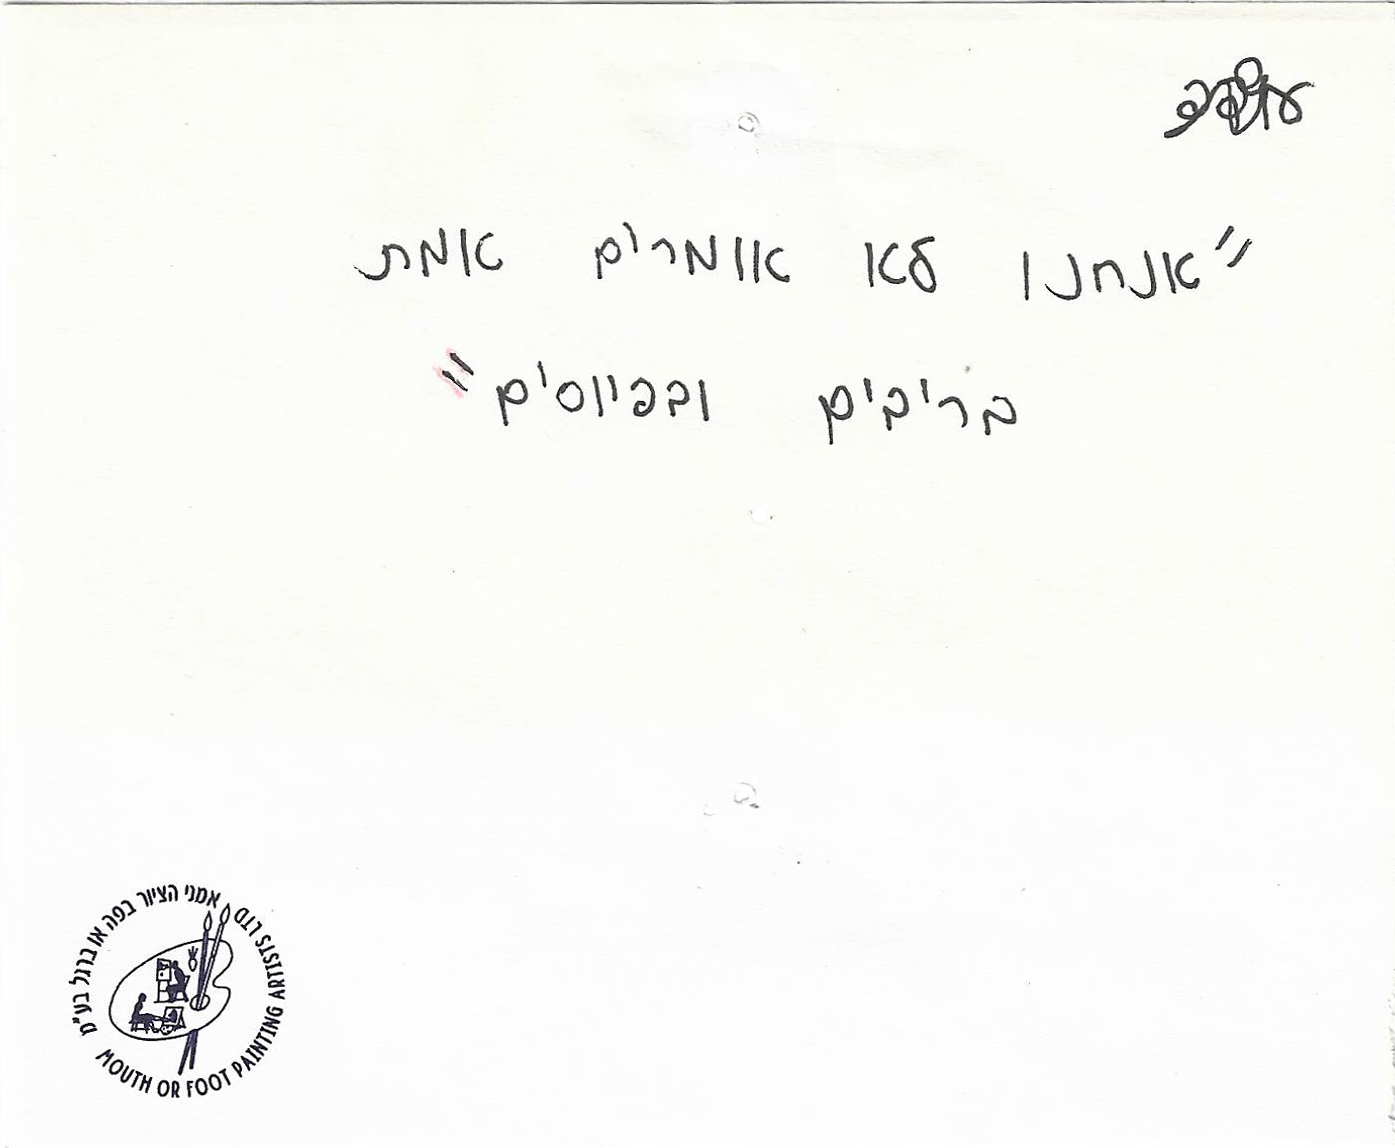 "אנחנו לא אומרים אמת
בריבים ובפיוסים"
אמני הציור בפה או ברגל בע"מ
MOUTH OR FOOT PAINTING ARTISTS LTD